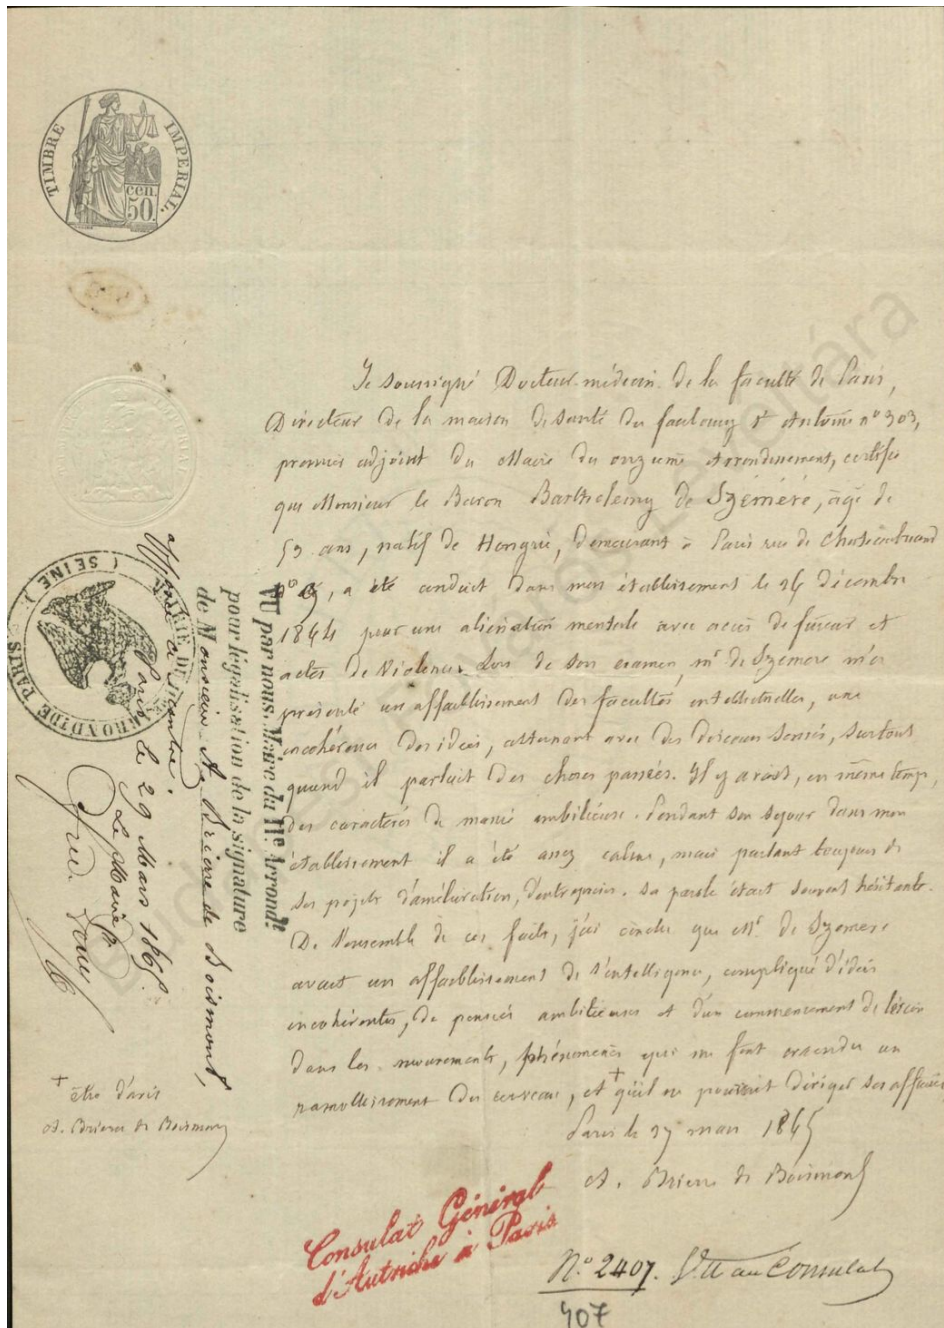 TIMBRE IMPERIAL.
CEN.
50.
Je soussigné Docteur-médecin de la faculté de Paris,
Directeur de la maison de santé du faubourg St Antoine n° 303,
premier adjoint du Maire du onzième Arrondissement, certifie
que Monsieur le Baron Barthelemy de Széméré, âgé de
53 ans, natif de Hongrie, demeurant à Paris rue de Chateaubriand
n°, a été conduit dans mon établissement le 26 décembre
1864 pour une aliénation mentale avec accès de fureur et
actes de violence. Lors de son examen, mr de Szemere m'a
présenté un affaiblissement des facultés intellectuelles, une
incohérence des idées, alternant avec des discours sensés, surtout
quand il parlait des choses passées. Il y avait, en même temps,
des caractères de manie ambitieuse. Pendant son séjour dans mon
établissement il a été assez calme, mais parlant toujours de
ses projets d'amélioration, d'entreprises. Sa parole était souvent hésitante.
De l'ensemble de ces faits, j'ai conclu que Mr de Szemere
avait un affaiblissement de l'intelligence, compliqué d'idées
incohérentes, de pensées ambitieuses et d'un commencement de lésion
dans les mouvements, phénomènes qui me font craindre un
ramollissement du cerveau, et + qu'il ne pouvait diriger ses affaires
Paris le 27 mars 1865
A. Brierre de Boismont
+ être d'avis
A. Brierre de Boismont
VU par nous, Maire du 11e Arrondt
pour légalisation de la signature
de Monsieur A. Brierre de Boismont,
apposée ci-contre.
Paris le 29 Mars 1865
Le Maire
MAIRIE DU ARROND T DE PARIS (SEINE)
Consulat Général
d'Autriche à Paris
N° 2407. Vu au Consulat
407
Budapest Főváros Levéltára